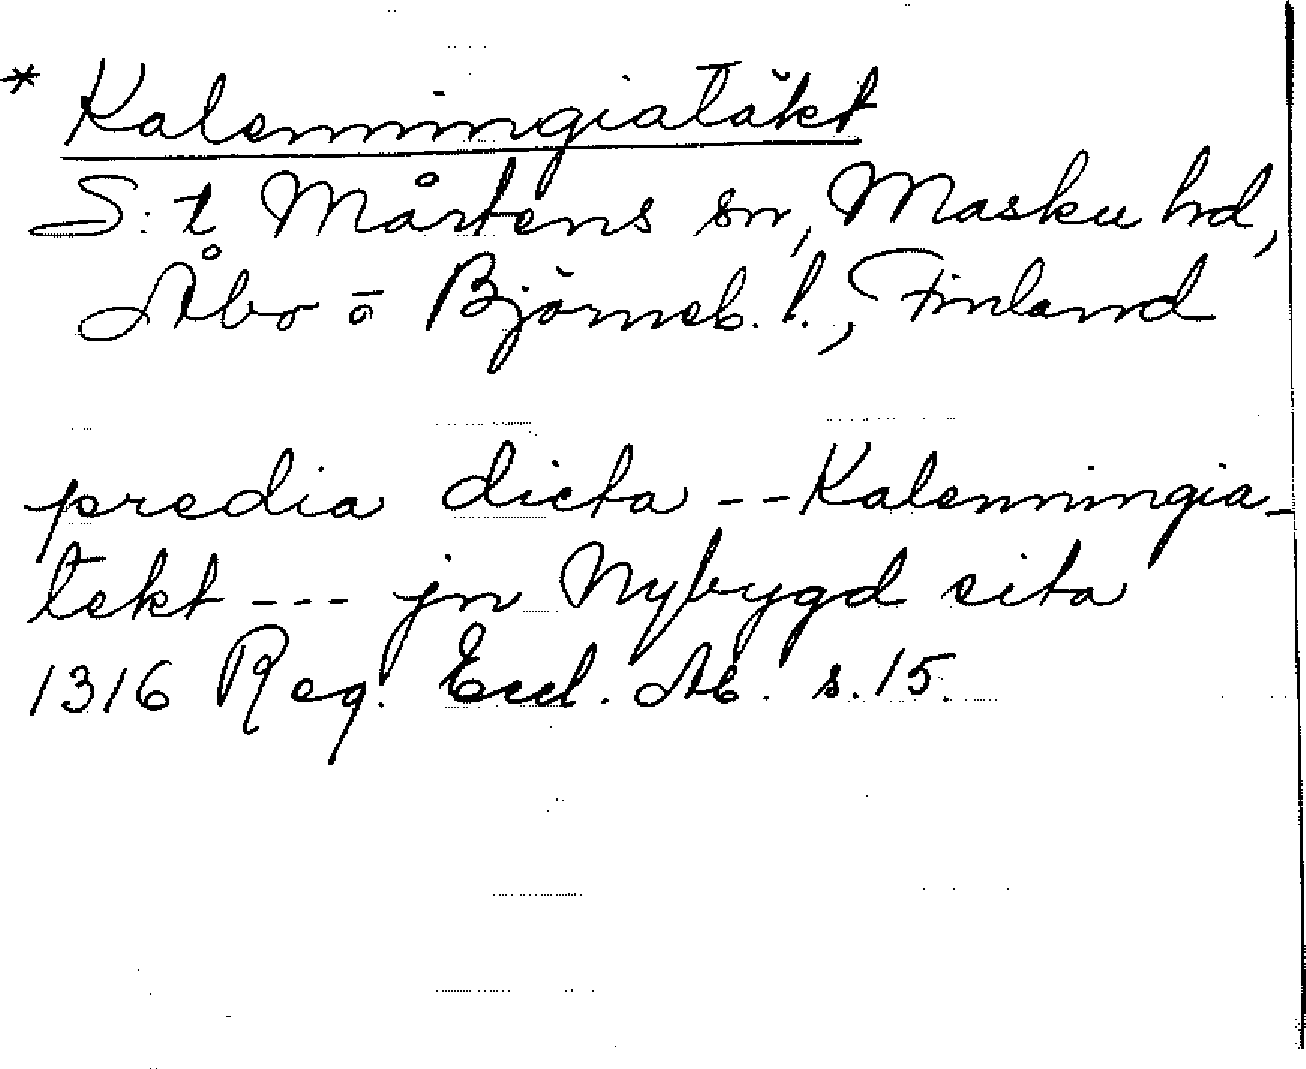 * Kalenningiatäkt
S:t Mårtens sn, Masku hd,
Åbo o Björneb. l., Finland
predia dicta -- Kalenningia-
tekt --- jn Nybygd sita
1316 Reg. Eccl. Ab. s. 15.